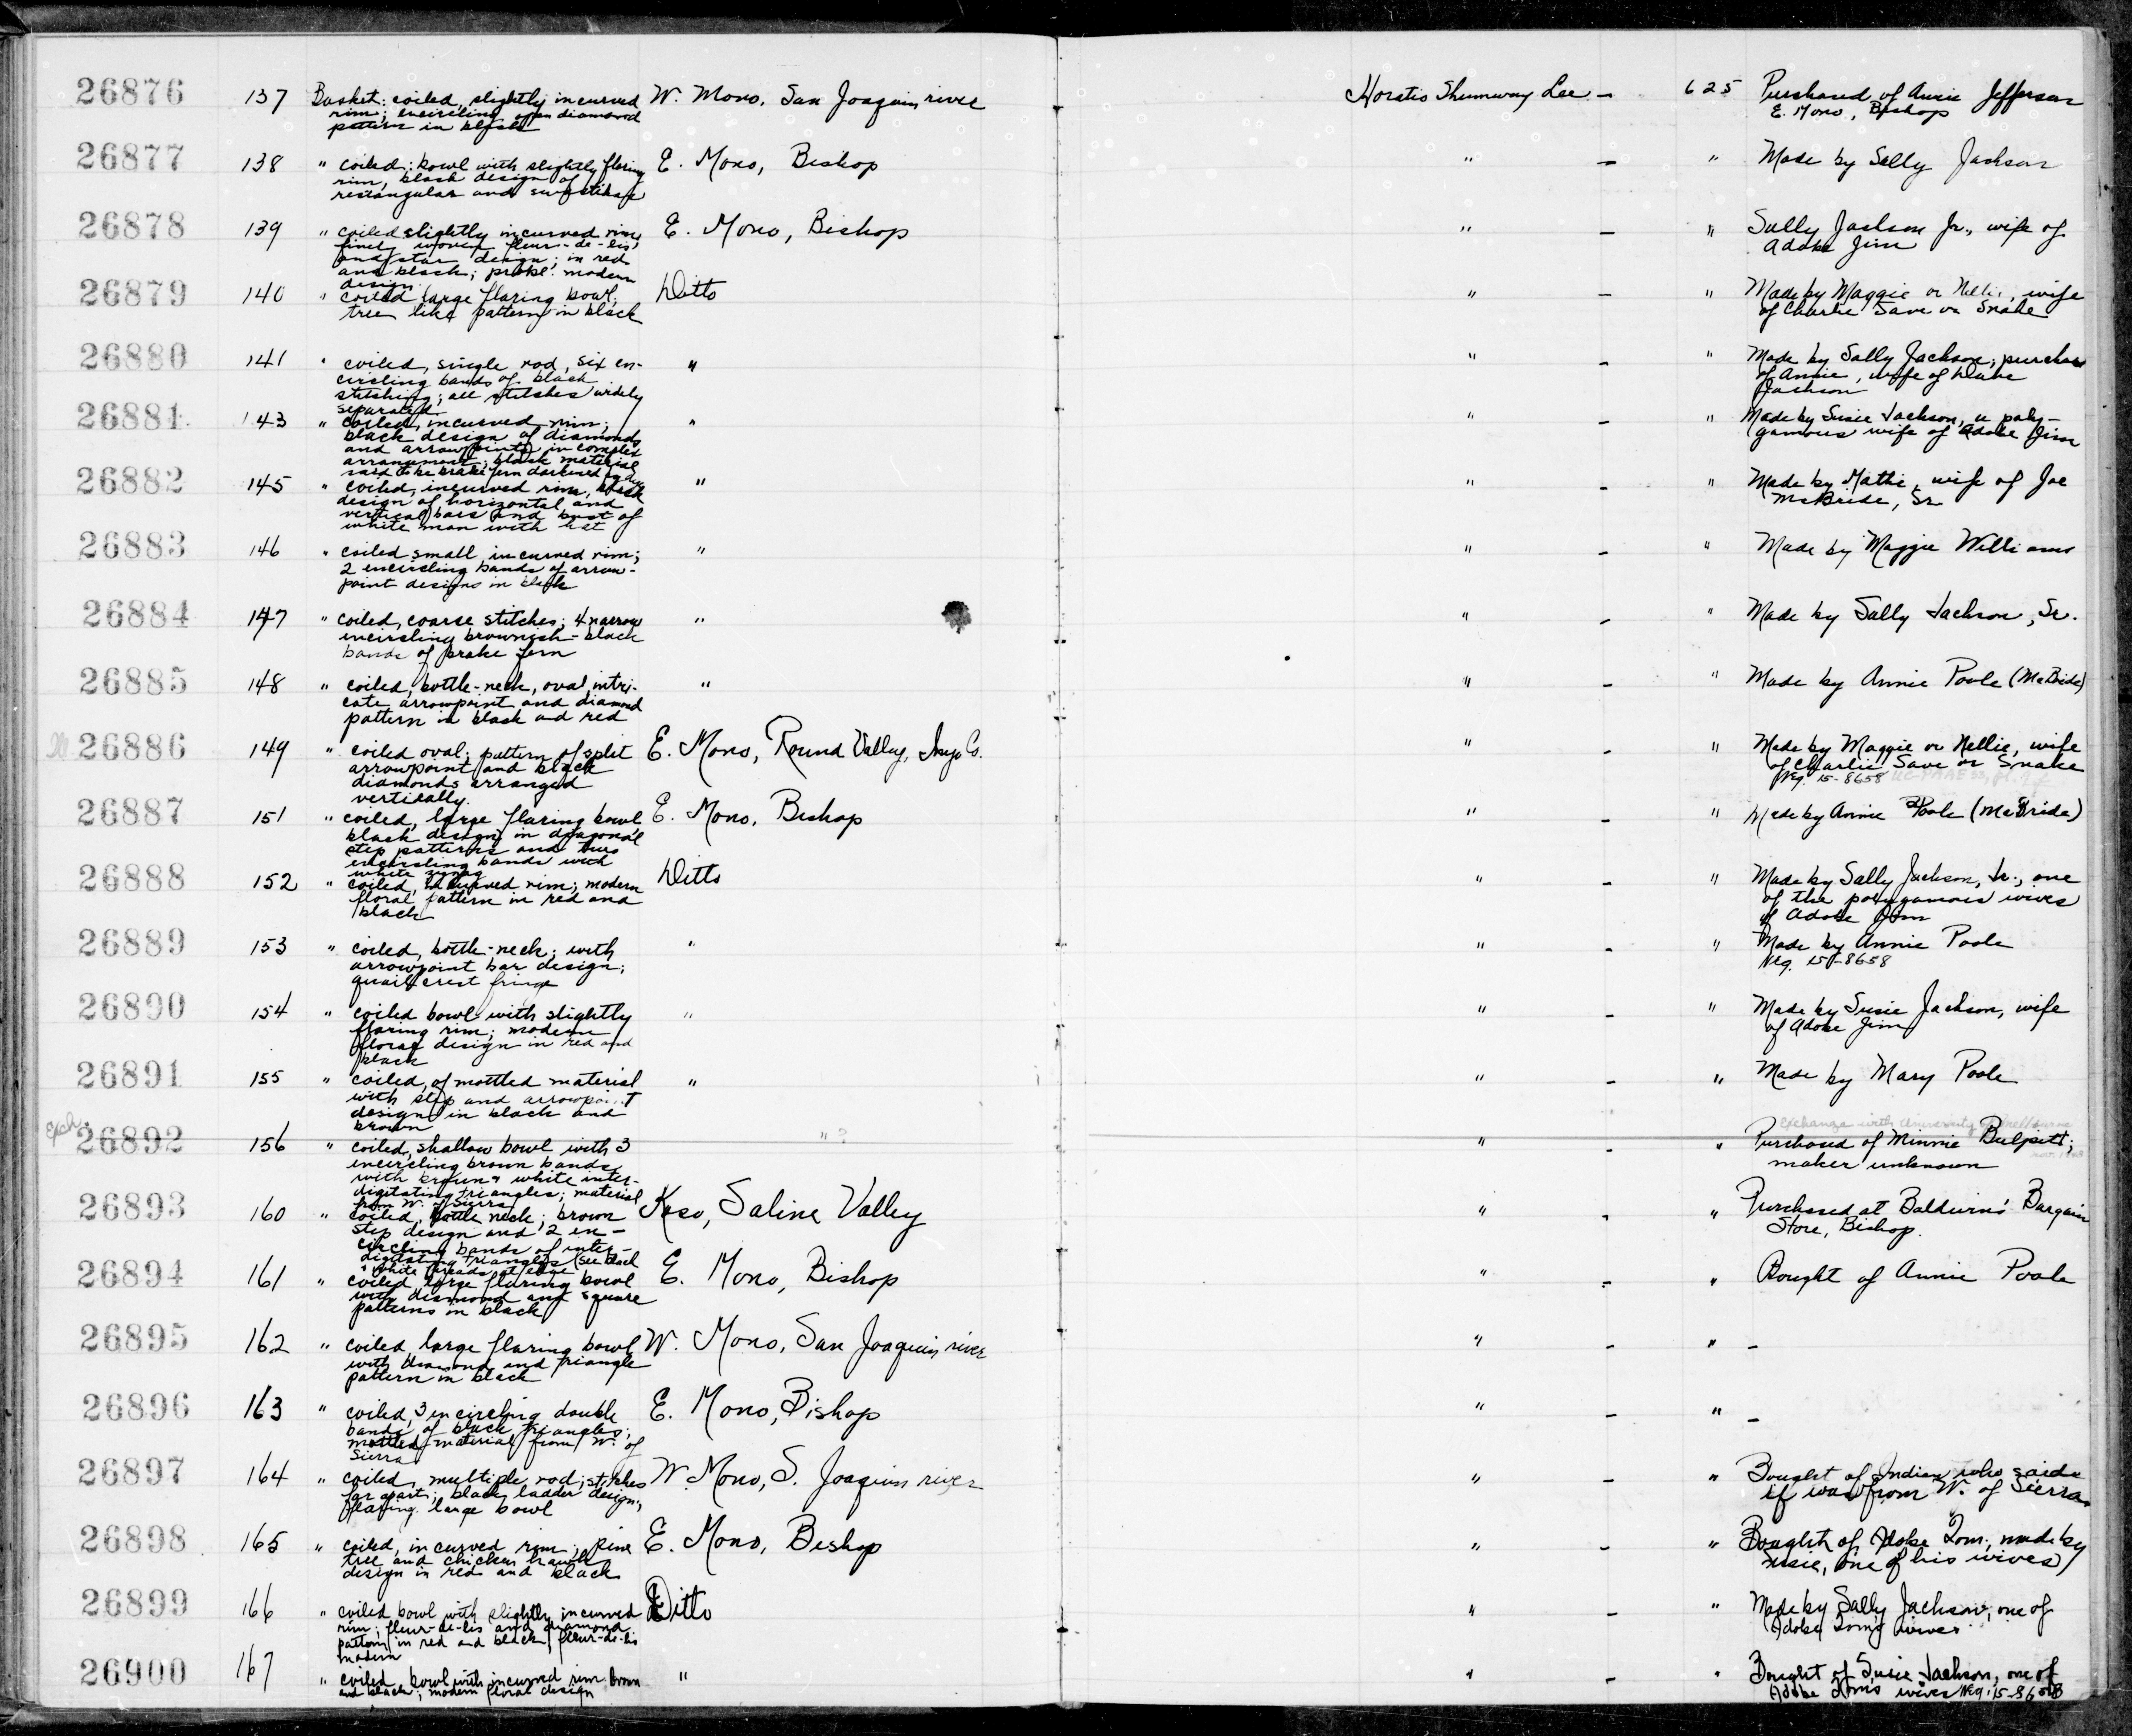 26876 137 Basket: coiled, slightly incurved W. Mono, San Joaquin river Horatio Shumway Lee — 625 Purchased of Annie Jefferson
rim; encircling open diamond E. Mono, Bishop
pattern in black
26877 138 " coiled; bowl with slightly flaring E. Mono, Bishop " — " Made by Sally Jackson
rim, black design of
rectangular and swastikas
26878 139 " coiled slightly incurved rim, E. Mono, Bishop " — " Sally Jackson Jr., wife of
finely woven fleur-de-lis, Adobe Jim
and star design; in red
and black; probl. modern
design
26879 140 " coiled large flaring bowl, Ditto " — " Made by Maggie or Nellie, wife
tree like pattern in black of Charlie Save or Snake
26880 141 " coiled, single rod, six en- " " — " Made by Sally Jackson; purchase
circling bands of black of Annie, wife of Dave
stitching; all stitches widely Jackson
separated
26881 143 " coiled, incurved rim; " " — " Made by Susie Jackson, a poly-
black design of diamonds gamous wife of Adobe Jim
and arrowpoints in complex
arrangement; black material
said to be brake fern darkened by
26882 145 " coiled, incurved rim, black " " — " Made by Mattie, wife of Joe
design of horizontal and McBride, Sr.
vertical bars and bust of
white man with hat
26883 146 " coiled small incurved rim; " " — " Made by Maggie Williams
2 encircling bands of arrow-
point designs in black
26884 147 " coiled, coarse stitches; 4 narrow " " — " Made by Sally Jackson, Sr.
encircling brownish-black
bands of brake fern
26885 148 " coiled, bottle-neck, oval, intri- " " — " Made by Annie Poole (McBride)
cate arrowpoint and diamond
pattern in black and red
26886 149 " coiled oval; pattern of split E. Mono, Round Valley, Inyo Co. " — " Made by Maggie or Nellie, wife
arrowpoint and black of Charlie Save or Snake
diamonds arranged Neg. 15-8658
vertically.
26887 151 " coiled, large flaring bowl E. Mono, Bishop " — " Made by Annie Poole (McBride)
black design in diagonal
step patterns and two
encircling bands with
white zigzag
26888 152 " coiled, incurved rim; modern Ditto " — " Made by Sally Jackson, Jr., one
floral pattern in red and of the polygamous wives
black of Adobe Jim
26889 153 " coiled, bottle-neck; with " " — " Made by Annie Poole
arrowpoint bar design; Neg. 15-8658
quail crest fringe
26890 154 " coiled bowl with slightly " " — " Made by Susie Jackson, wife
flaring rim; modern of Adobe Jim
floral design in red and
black
26891 155 " coiled, of mottled material " " — " Made by Mary Poole
with step and arrowpoint
design in black and
brown
Exch. Exchange with University of Melbourne
26892 156 " coiled, shallow bowl with 3 " ? " — " Purchased of Minnie Bulpitt;
encircling brown bands maker unknown
with brown & white inter-
digitating triangles; material
from W. of Sierra
26893 160 " coiled, bottle neck; brown Koso, Saline Valley " — " Purchased at Baldwin's Bargain
step design and 2 en- Store, Bishop.
circling bands of inter-
digitating triangles (see black
& white beads at edge
26894 161 " coiled, large flaring bowl E. Mono, Bishop " — " Bought of Annie Poole
with diamond and square
patterns in black
26895 162 " coiled, large flaring bowl W. Mono, San Joaquin river " — " —
with diamond and triangle
pattern in black
26896 163 " coiled, 3 encircling double E. Mono, Bishop " — " —
bands of black triangles;
mottled material from W. of
Sierra
26897 164 " coiled, multiple rod; stitches W. Mono, S. Joaquin river " — " Bought of Indian who said
far apart; black ladder design; it was from W. of Sierra
flaring large bowl
26898 165 " coiled, incurved rim; pine E. Mono, Bishop " — " Bought of Adobe Tom; made by
tree and chicken hawk Susie, one of his wives)
design in red and black
26899 166 " coiled bowl with slightly incurved Ditto " — " Made by Sally Jackson, one of
rim; fleur-de-lis and diamond Adobe Tom's wives.
pattern in red and black; fleur-de-lis
modern
26900 167 " coiled bowl with incurved rim brown " " — " Bought of Susie Jackson, one of
and black; modern floral design Adobe Tom's wives Neg. 15-8658